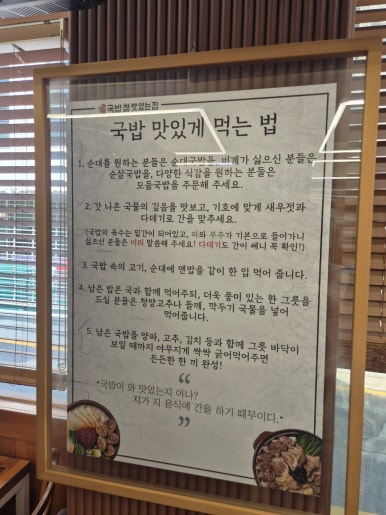 국밥참맛있는집
국밥 맛있게 먹는 법
1. 순대를 원하는 분들은 순대국밥을, 비계가 싫으신 분들은
순살국밥을, 다양한 식감을 원하는 분들은
모둠국밥을 주문해 주세요.
2. 갓 나온 국물의 깊음을 맛보고, 기호에 맞게 새우젓과
다데기로 간을 맞추세요.
(국밥의 육수는 밑간이 되어있고, 파와 부추가 기본으로 들어가니
싫으신 분들은 미리 말씀해 주세요! 다데기도 간이 쎄니 꼭 확인!)
3. 국밥 속의 고기, 순대에 맨밥을 같이 한 입 먹어 줍니다.
4. 남은 밥은 국과 함께 먹어주되, 더욱 풍미 있는 한 그릇을
드실 분들은 청양고추나 들깨, 깍두기 국물을 넣어
먹어줍니다.
5. 남은 국밥을 양파, 고추, 김치 등과 함께 그릇 바닥이
보일 때까지 야무지게 싹싹 긁어먹어주면
든든한 한 끼 완성!
"국밥이 왜 맛있는지 아나?
지가 지 음식에 간을 하기 때문이다."